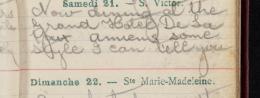 Samedi 21. — S. Victor.
Now dining at the
Grand Hotel De La
Paix Amiens some
style I can tell you
Dimanche 22. — Ste Marie-Madeleine.